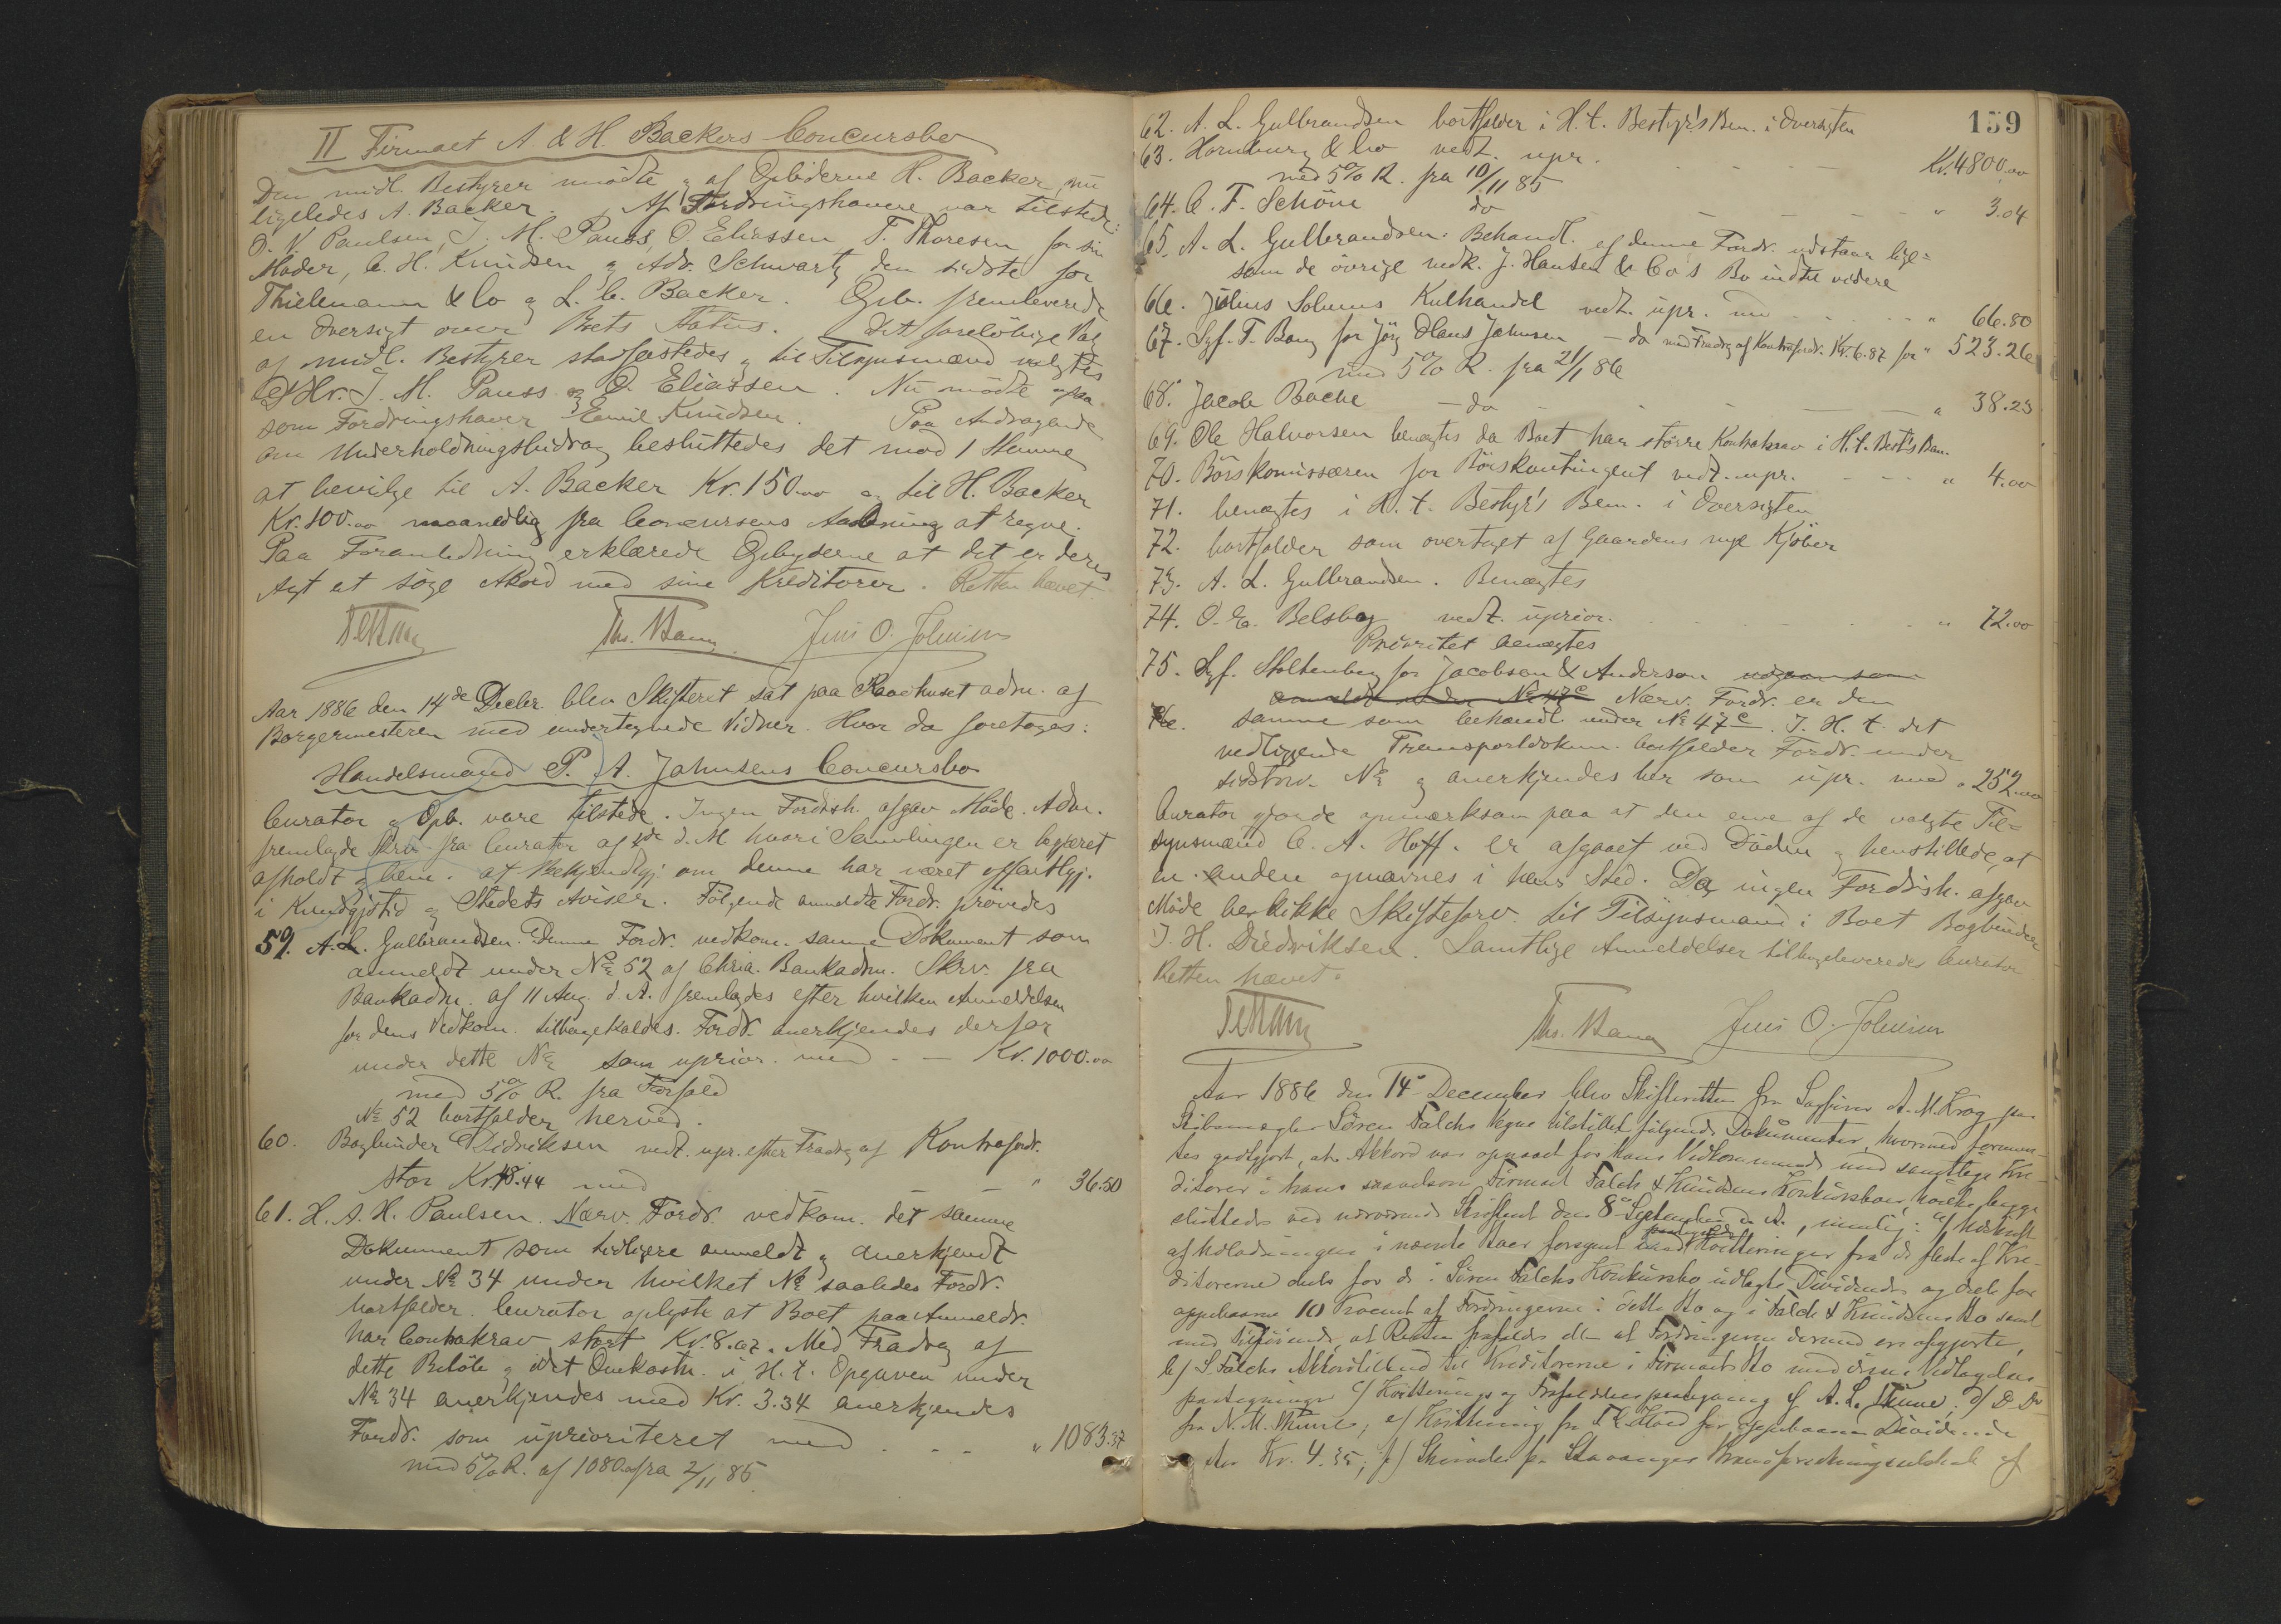 II Firmaet A & H. Backers Concursbo
Den midl. Bestyrer mödte og af Opbyderne H. Backer, nu
ligeledes A. Backer. Af Fordringshavere var tilstede:
O. V. Paulsen, J. M. Pauss, O. Eliassen, T. Thoresen for sin
Moder, C. H. Knudsen og Adv. Schwartz, den sidste for
Thielemann & Co og L. C. Backer. Opb. fremleverede
en Oversigt over Boets Status. Det foreløbige Valg
af midl. Bestyrer stadfæstedes og til Tilsynsmænd valgtes
Hr. J. M. Pauss og O. Eliassen. Nu mödte ogsaa
som Fordringshaver Emil Knudsen. Paa Andragende
om Underholdningsbidrag besluttedes det mod 1 Stemme
at bevilge til A. Backer Kr. 150.00 og til H. Backer
Kr. 100.00 maanedlig fra Concursens Aabning at regne.
Paa Foranledning erklærede Opbyderne at det er deres
Agt at söge Akord med sine Kreditorer. Retten hævet.
Ths. Bang Jens O. Johnsen
Aar 1886 den 14de Decbr. blev Skifteret sat paa Raadhuset adm. af
Borgermesteren med undertegnede Vidner. Hvor da foretoges:
Handelsmand P. A. Jahnsens Concursbo
Curator og Opb. vare tilstede. Ingen Fordrsh. afgav Möde. Adm.
fremlagde Skrv. fra Curator af d. M. hvori Samlingen er begjæret
afholdt og bem. at Bekjendtgj. om denne har været offentligj.
i Kundgjötid. og Stedets Aviser. Fölgende anmeldte Fordr. prövedes
59. A. L. Gulbrandsen. Denne Fordr. vedkom. samme Dokument som
anmeldt under No 52 af Chria. Bankadm. Skrv. fra
Bankadm. af 11 Aug. d. A. fremlagdes efter hvilken Anmeldelsen
for dens Vedkom. tilbagekaldes. Fordr. anerkjendes derfor
under dette No som uprior. med - - Kr. 1000.00
med 5% R. fra Forfald
No 52 bortfalder herved.
60. Bogbinder Didriksen vedt. upr. efter Fradrag af Kontrafordr.
stor Kr. 18.44 med - - " 36.50
61. H. A. H. Paulsen. Nærv. Fordr. vedkom. det samme
Dokument som tidligere anmeldt og anerkjendt
under No 34 under hvilket No saaledes Fordr.
bortfalder. Curator oplyste at Boet paa Anmeldr.
har Contrakrav stort Kr. 8.07. Med Fradrag af
dette Belöb og idet Omkostn. i H. t. Opgaven under
No 34 anerkjendes med Kr. 3.34 anerkjendes
Fordr. som uprioriteret med . - - " 1083.37
med 5% R. af 1080.00 fra 2/11 85.
159
62. A. L. Gulbrandsen bortfalder i H. t. Bestyr's Bem. i Oversigten
63. Hornburg & Co vedt. upr. - - - Kr. 4800.00
med 5% R. fra 10/11 85
64. C. F. Schöne do - - - " 3.04
65. A. L. Gulbrandsen. Behandl. af denne Fordr. udstaar lige=
som de övrige vedk. J. Hansen & Co's Bo indtil videre
66. Julius Solums Kulhandel vedt. upr. med - - - " 66.80
67. Sgf. T. Bang for Jörg Hans Jahnsen - do med Fradrag af Kontrafordr. Kr. 6.87 for " 523.26
med 5% R. fra 21/1 86
68. Jacob Bache - do - - - " 38.23
69. Ole Halvorsen benægtes da Boet har större Kontrakrav i H. t. Best's Bem.
70. Börskomissæren for Börskontingent vedt. upr. - - - " 4.00
71. benægtes i H. t. Bestyr's Bem. i Oversigten
72. bortfalder som overtaget af Gaardens nye Kjöber
73. A. L. Gulbrandsen. Benægtes
74. O. E. Belsbog vedt. uprior. - - - " 72.00
Prioritet benægtes
75. Sgf. Stoltenberg for Jacobsen & Anderson udgaar som
anmeldt under No 47c Nærv. Fordr. er den
samme som behandl. under No 47c. I H. t. det
vedliggende Transportdokum. bortfalder Fordr. under
sidstnv. No og anerkjendes her som upr. med " 252.00
Curator gjorde opmærksom paa at den ene af de valgte Til=
synsmænd C. A. Hoff er afgaaet ved Döden og henstillede, at
en anden opnævnes i hans Sted. Da ingen Fordrsh. afgav
Möde beskikke Skifteforv. til Tilsynsmand i Boet Bogbinder
J. H. Diedriksen. Samtlige Anmeldelser tilbageleveredes Curator
Retten hævet.
Ths. Bang Jens O. Johnsen
Aar 1886 den 14de December blev Skifteretten fra Sagförer A. M. Krog paa
Skibsmægler Sören Falchs Vegne tilstillet fölgende Dokumenter, hvormed formen-
tes godtgjort, at Akkord var opnaaet for hans Vedkommende med samtlige Kre-
ditorer i hans saavelsom Firmaet Falch & Knudsens Konkursboer, hvilke begge
sluttedes ved nærværende Skifteret den 8de September d. A., nemlig: a/
af Udlodningen i nævnte Boer forsynet med Kvitteringer fra de fleste af Kre-
ditorerne dels for de i Sören Falchs Konkursbo udlagte Dividende og dels for
oppebaarne 10 Procent af Fordringerne i dette Bo og i Falch & Knudsens Bo samt
med Tilföiende, at Resten frafaldes eller at Fordringerne dermed ere afgjorte,
b/ S. Falchs Akkordtilbud til Kreditorerne i Firmaets Bo med disses Vedtagelses
paategninger c/ Kvitterings og Frafaldelsespaategning af A. L. Thune, d/ D. Do
fra N. M. Thune, e/ Kvittering fra for oppebaaren Dividende
stor Kr. 4.35, f/ Skrivelse fra Stavanger af